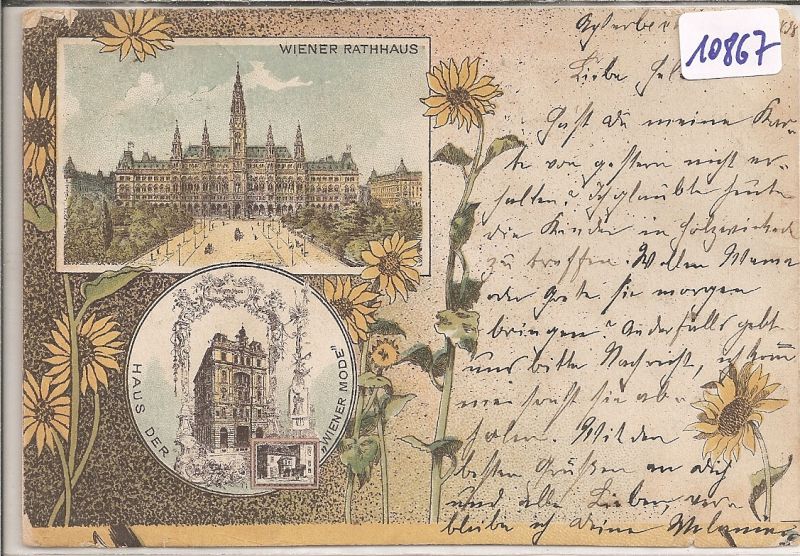 WIENER RATHHAUS
HAUS DER „WIENER MODE"
10867
Liebe
Hast du meine Kar-
te von gestern nicht er-
halten? Ich glaubte heute
die Kinder in Holzwickede
zu treffen. Wollen Mama
oder Grete sie morgen
bringen? Anderfalls gebt
uns bitte Nachricht, ich komme
sonst sie ab-
holen. Mit den
besten Grüßen an dich
und alle Lieben, ver-
bleibe ich deine